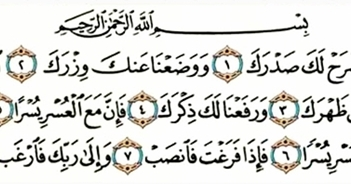 بِسْمِ اللَّهِ الرَّحْمَٰنِ الرَّحِيمِ
رَحْ لَكَ صَدْرَكَ ١ وَوَضَعْنَا عَنكَ وِزْرَكَ ٢
ظَهْرَكَ ٣ وَرَفَعْنَا لَكَ ذِكْرَكَ ٤ فَإِنَّ مَعَ الْعُسْرِ يُسْرًا
يُسْرًا ٦ فَإِذَا فَرَغْتَ فَانصَبْ ٧ وَإِلَىٰ رَبِّكَ فَارْغَب